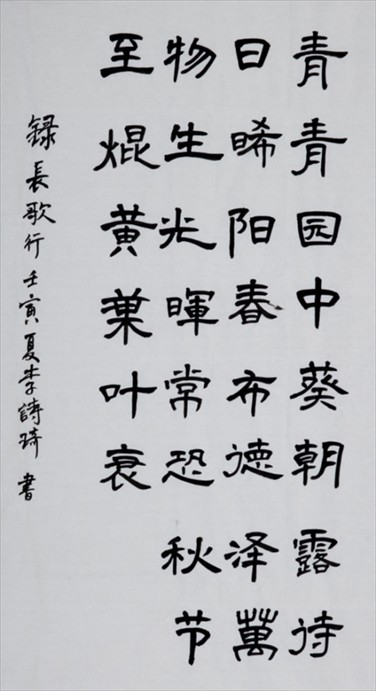 青青园中葵朝露待
日晞阳春布德泽萬
物生光暉常恐秋节
至焜黄叶衰
録長歌行壬寅夏李詩琦書